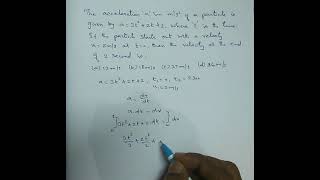 The acceleration 'a' in m/s² of a particle is
given by a = 3t² + 2t + 2, where 't' is the time.
If the particle starts out with a velocity
u = 2 m/s at t = 0, then the velocity at the end
of 2 second is
(a) 12 m/s (b) 18 m/s (c) 27 m/s (d) 36 m/s
a = 3t² + 2t + 2,
a = dv/dt
a · dt = dv
∫ 3t² + 2t + 2 · dt = ∫ dv
3t³/3 + 2t²/2 +